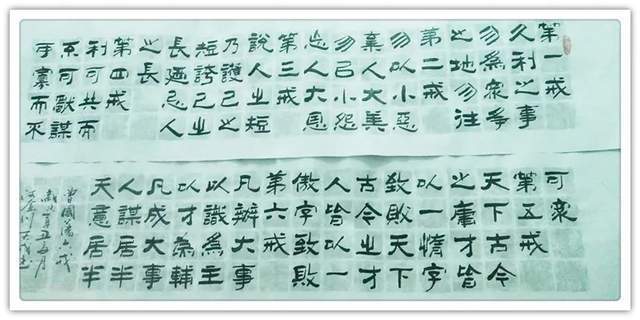 第一戒
久利之事
勿為眾爭
之地勿往
第二戒
勿以小惡
棄人大美
勿已小怨
忘人大恩
第三戒
說人之短
乃護己之
短誇己之
長迺忌人
之長
第四戒
利可共而
不可獨謀
可寡而不
可眾
第五戒
天下古今
之庸才皆
以一惰字
致敗天下
古今之才
人皆以一
傲字致敗
第六戒
凡辦大事
以識為主
以才為輔
凡成大事
人謀居半
天意居半
曾國藩六戒